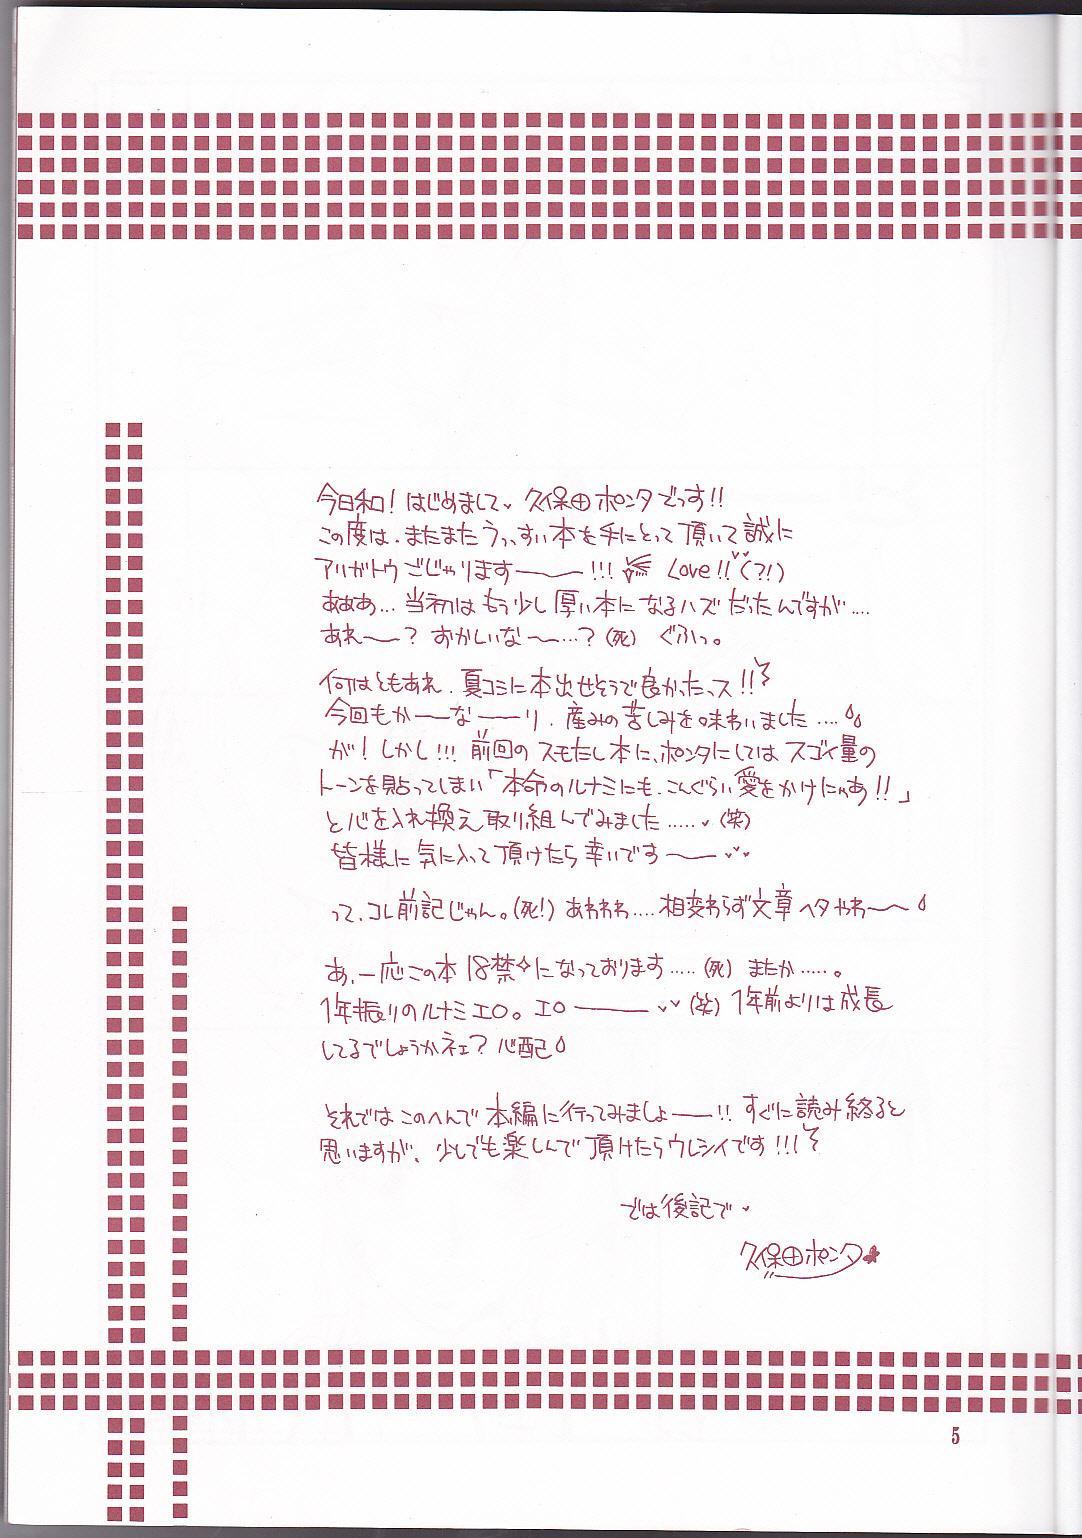 今日和！はじめまして♥ 久保田ポンタでっす!!
この度は、またまたうっっすい本を手にとって頂いて誠に
アリガトウごじゃりますー!!! Love!!♥♥(?!)
あああ…当初はもう少し厚い本になるハズだったんですが….
あれー？おかしいなー…？(死) ぐふっ。
何はともあれ、夏コミに本出せそうで良かったっス!!
今回もかーなーり、産みの苦しみを味わいました….
が！しかし!!! 前回のスモたし本に、ポンタにしてはスゴイ量の
トーンを貼ってしまい「本命のルナミにも、こんぐらい愛をかけにゃあ!!」
と心を入れ換え取り組んでみました…..♥(笑)
皆様に気に入って頂けたら幸いですー♥♥
って、コレ前記じゃん。(死!) あわわわ….相変わらず文章ヘタやわ〜
あ、一応この本18禁✧になっております…..(死) またか…..。
1年振りのルナミエロ。エロー♥♥(笑) 1年前よりは成長
してるでしょうかネェ？心配
それではこのへんで本編に行ってみましょー!! すぐに読み終ると
思いますが、少しでも楽しんで頂けたらウレシイです!!!
では後記で♥
久保田ポンタ
5